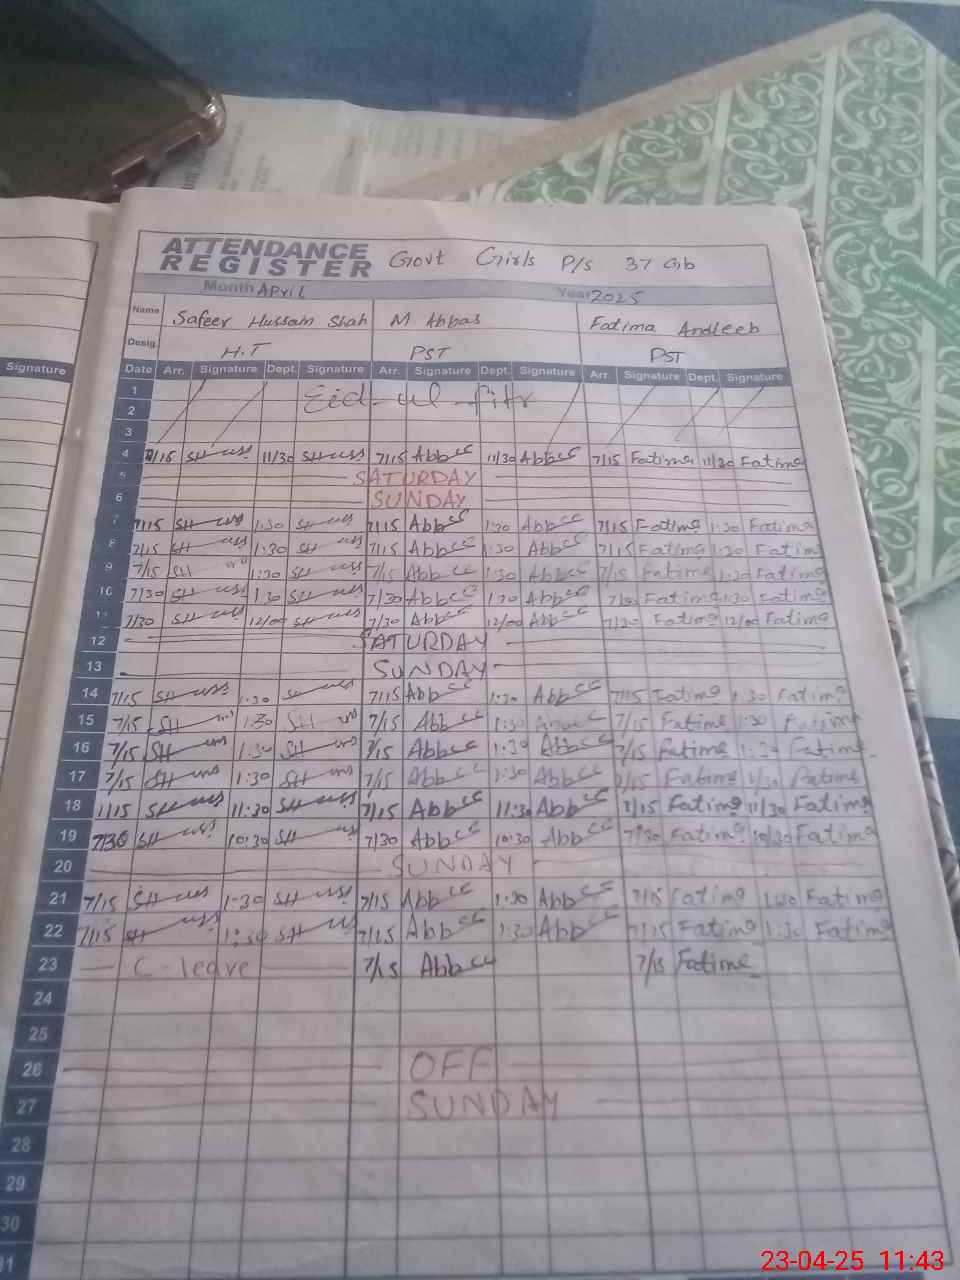 ATTENDANCE REGISTER Govt Girls P/S 37 GB
Month April Year 2025
Name Safeer Hussain Shah M Abbas Fatima Andleeb
Desig. H.T PST PST
Signature
Date Arr. Signature Dept. Signature Arr. Signature Dept. Signature Arr. Signature Dept. Signature
1 Eid-ul-fitr
2
3
4 7/15 11/30 7/15 Abbas 11/30 Abbas 7/15 Fatima 11/30 Fatima
5 SATURDAY
6 SUNDAY
7 7/15 1:30 7/15 Abbas 1:30 Abbas 7/15 Fatima 1:30 Fatima
8 7/15 1:30 7/15 Abbas 1:30 Abbas 7/15 Fatima 1:30 Fatima
9 7/15 1:30 7/15 Abbas 1:30 Abbas 7/15 Fatima 1:30 Fatima
10 7/30 1:30 7/30 Abbas 1:30 Abbas 7/30 Fatima 1:30 Fatima
11 7/30 12/00 7/30 Abbas 12/00 Abbas 7/30 Fatima 12/00 Fatima
12 SATURDAY
13 SUNDAY
14 7/15 1:30 7/15 Abbas 1:30 Abbas 7/15 Fatima 1:30 Fatima
15 7/15 1:30 7/15 Abbas 1:30 Abbas 7/15 Fatima 1:30 Fatima
16 7/15 1:30 7/15 Abbas 1:30 Abbas 7/15 Fatima 1:30 Fatima
17 7/15 1:30 7/15 Abbas 1:30 Abbas 7/15 Fatima 1/30 Fatima
18 11:30 7/15 Abbas 11:30 Abbas 7/15 Fatima 11/30 Fatima
19 7/30 10:30 7/30 Abbas 10:30 Abbas 7/30 Fatima 10/30 Fatima
20 SUNDAY
21 7/15 1:30 7/15 Abbas 1:30 Abbas 7/15 Fatima 1:30 Fatima
22 7/15 1:30 7/15 Abbas 1:30 Abbas 7/15 Fatima 1:30 Fatima
23 C-leave 7/15 Abbas 7/15 Fatima
24
25
26 OFF
27 SUNDAY
28
29
30
31
23-04-25 11:43